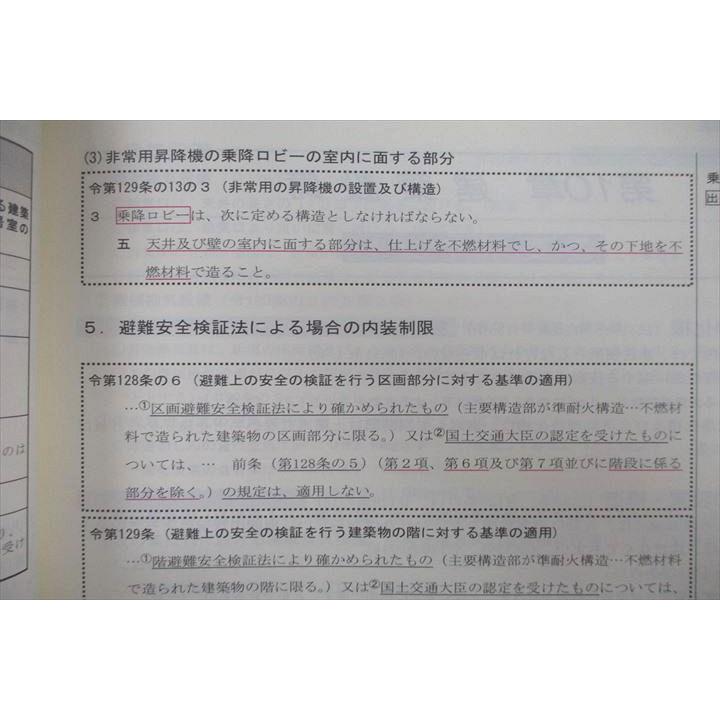 (3)非常用昇降機の乗降ロビーの室内に面する部分
令第129条の13の3（非常用の昇降機の設置及び構造）
3 乗降ロビーは、次に定める構造としなければならない。
五 天井及び壁の室内に面する部分は、仕上げを不燃材料でし、かつ、その下地を不
燃材料で造ること。
5．避難安全検証法による場合の内装制限
令第128条の6（避難上の安全の検証を行う区画部分に対する基準の適用）
…①区画避難安全検証法により確かめられたもの（主要構造部が準耐火構造…不燃材
料で造られた建築物の区画部分に限る。）又は②国土交通大臣の認定を受けたものに
ついては、… 前条（第128条の5）（第2項、第6項及び第7項並びに階段に係る
部分を除く。）の規定は、適用しない。
令第129条（避難上の安全の検証を行う建築物の階に対する基準の適用）
…①階避難安全検証法により確かめられたもの（主要構造部が準耐火構造…不燃材料
で造られた建築物の階に限る。）又は②国土交通大臣の認定を受けたものについては、
る建築
室の
のは
り、
受け
乗
出